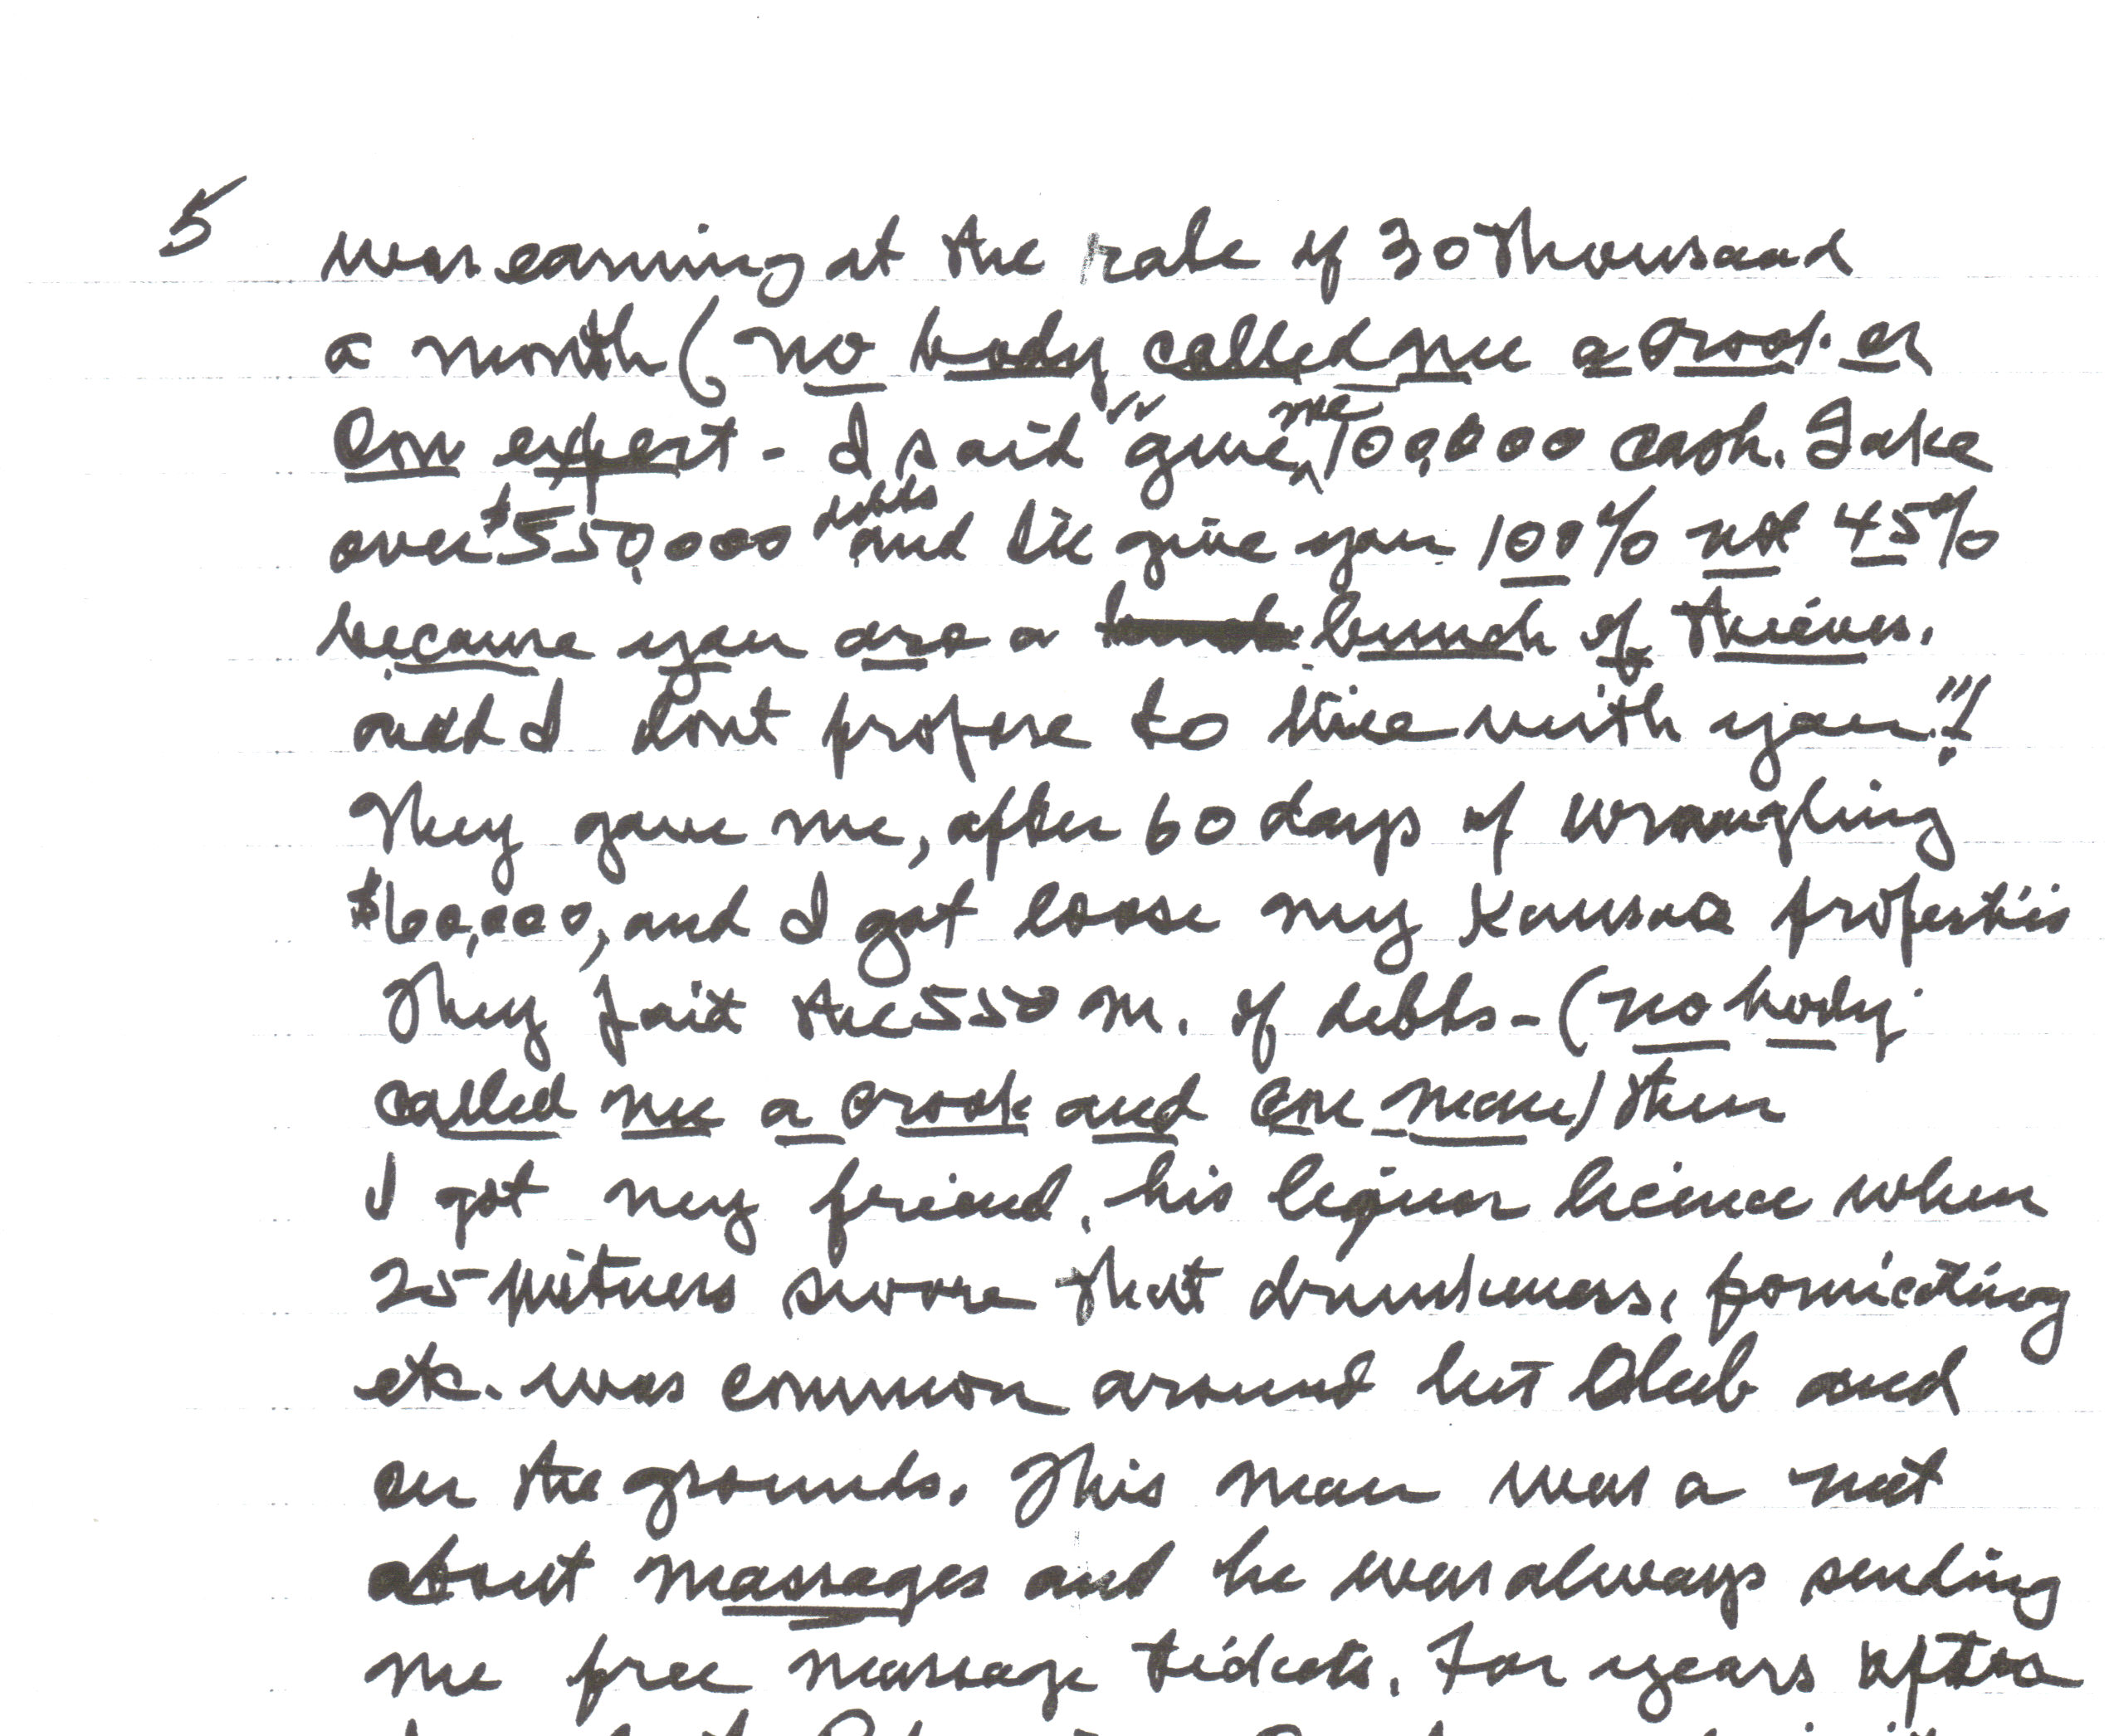 5 was earning at the rate of 30 thousand
a month (no body called me a crook or
con expert - I said "give me 100,000 cash. Take
over $550,000 debts and I'll give you 100% not 45%
because you are a bunch of thieves.
and I dont propose to live with you"!
They gave me, after 60 days of wrangling
$60,000, and I got loose my Kansas properties
They paid the 550 M. of debts - (no body
called me a crook and con man) then
I got my friend, his liquor licence when
25 witness swore that drunkeness, fornicating
etc. was common around his Club and
on the grounds. This man was a nut
about massages and he was always sending
me free massage tickets. For years after